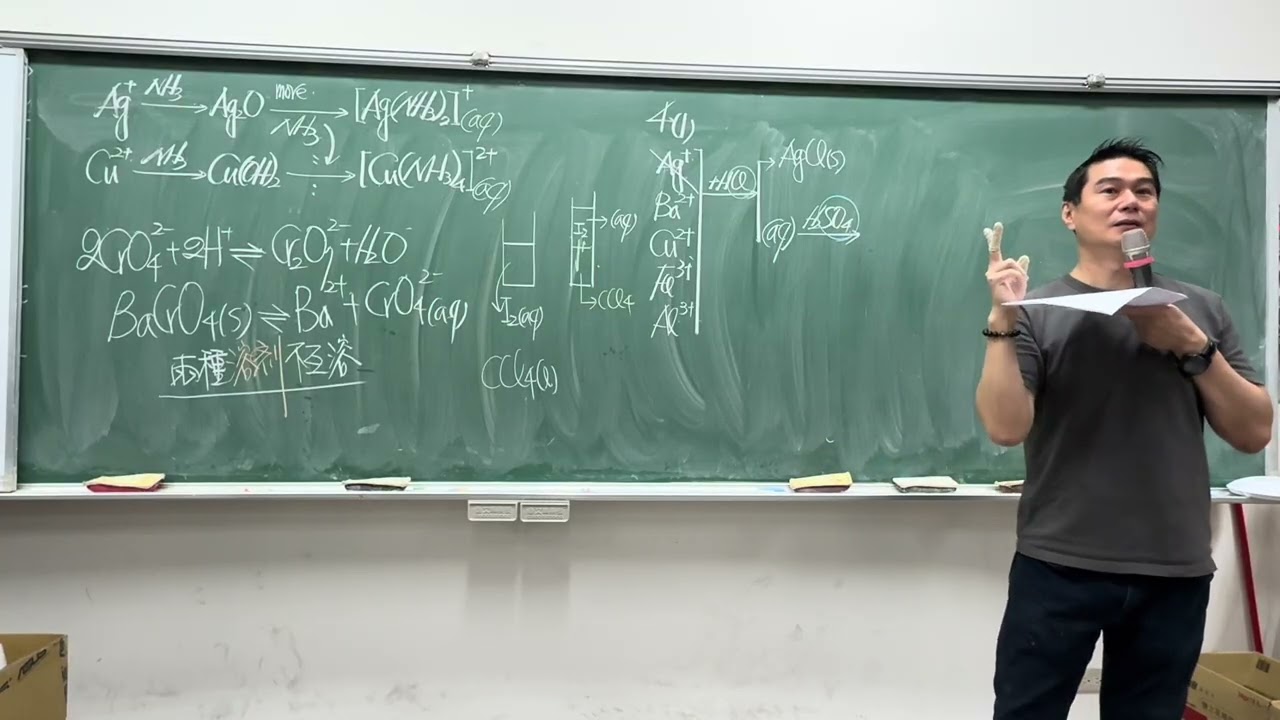 Ag⁺ —NH₃→ Ag₂O —more NH₃→ [Ag(NH₃)₂]⁺(aq)
Cu²⁺ —NH₃→ Cu(OH)₂ → [Cu(NH₃)₄]²⁺(aq)
2CrO₄²⁻+2H⁺⇌Cr₂O₇²⁻+H₂O
BaCrO₄(s)⇌Ba²⁺+CrO₄²⁻(aq)
兩種溶劑不互溶
I₂(aq)
CCl₄(l)
I₂
(aq)
CCl₄
4(1)
Ag⁺
Ba²⁺
Cu²⁺
Fe³⁺
Al³⁺
+HCl
AgCl(s)
(aq) +H₂SO₄